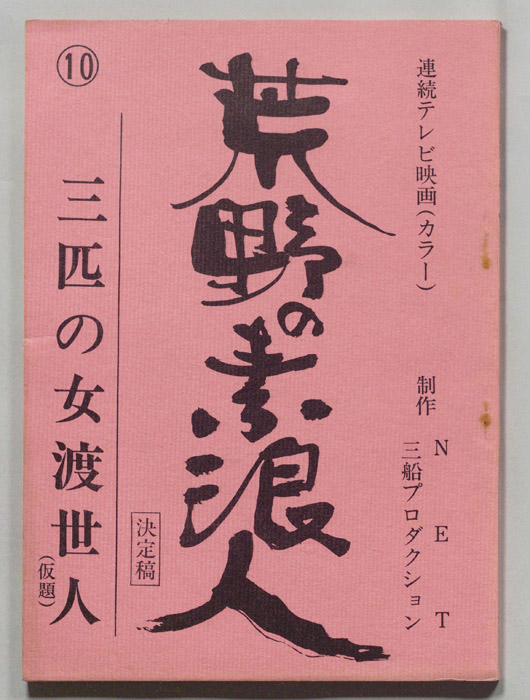 連続テレビ映画(カラー)
制作
NET
三船プロダクション
荒野の素浪人
決定稿
⑩
三匹の女渡世人
(仮題)